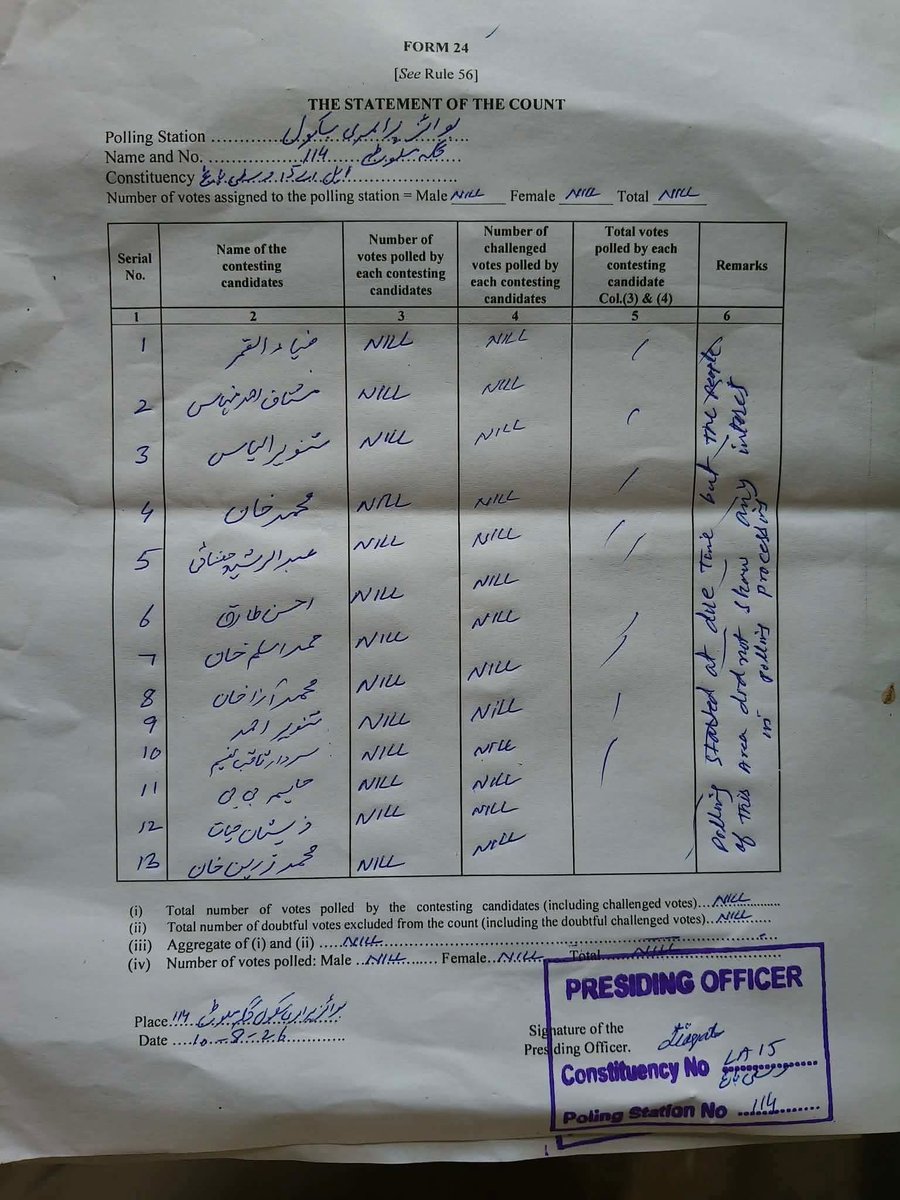 FORM 24
[See Rule 56]
THE STATEMENT OF THE COUNT
Polling Station ........ بوائز پرائمری سکول
Name and No. ........ 114 ........
Constituency ........ وسطی باغ ........
Number of votes assigned to the polling station = Male NILL Female NILL Total NILL
Serial No. Name of the contesting candidates Number of votes polled by each contesting candidates Number of challenged votes polled by each contesting candidates Total votes polled by each contesting candidate Col.(3) & (4) Remarks
1 2 3 4 5 6
1 ضیاء القمر NILL NILL /
2 مشتاق احمد NILL NILL /
3 تنویر الیاس NILL NILL /
4 محمد خان NILL NILL /
5 عبدالرشید چغتائی NILL NILL /
6 احسن طارق NILL NILL /
7 محمد اسلم خان NILL NILL /
8 محمد آزاد خان NILL NILL /
9 تنویر احمد NILL NILL /
10 سردار ثاقب نعیم NILL NILL
11 بی بی NILL NILL
12 ذیشان حیات NILL NILL
13 محمد زرین خان NILL NILL
Polling started at due time but the people
of this Area did not show any interest
in polling processing
(i) Total number of votes polled by the contesting candidates (including challenged votes)...NILL
(ii) Total number of doubtful votes excluded from the count (including the doubtful challenged votes)..NILL
(iii) Aggregate of (i) and (ii) ....NILL
(iv) Number of votes polled: Male ...NILL....... Female...NILL.... Total....NILL
Place 114 بوائز پرائمری سکول
Date ....10-8-26............
Signature of the
Presiding Officer.
PRESIDING OFFICER
Constituency No LA 15
وسطی باغ
Poling Station No 114